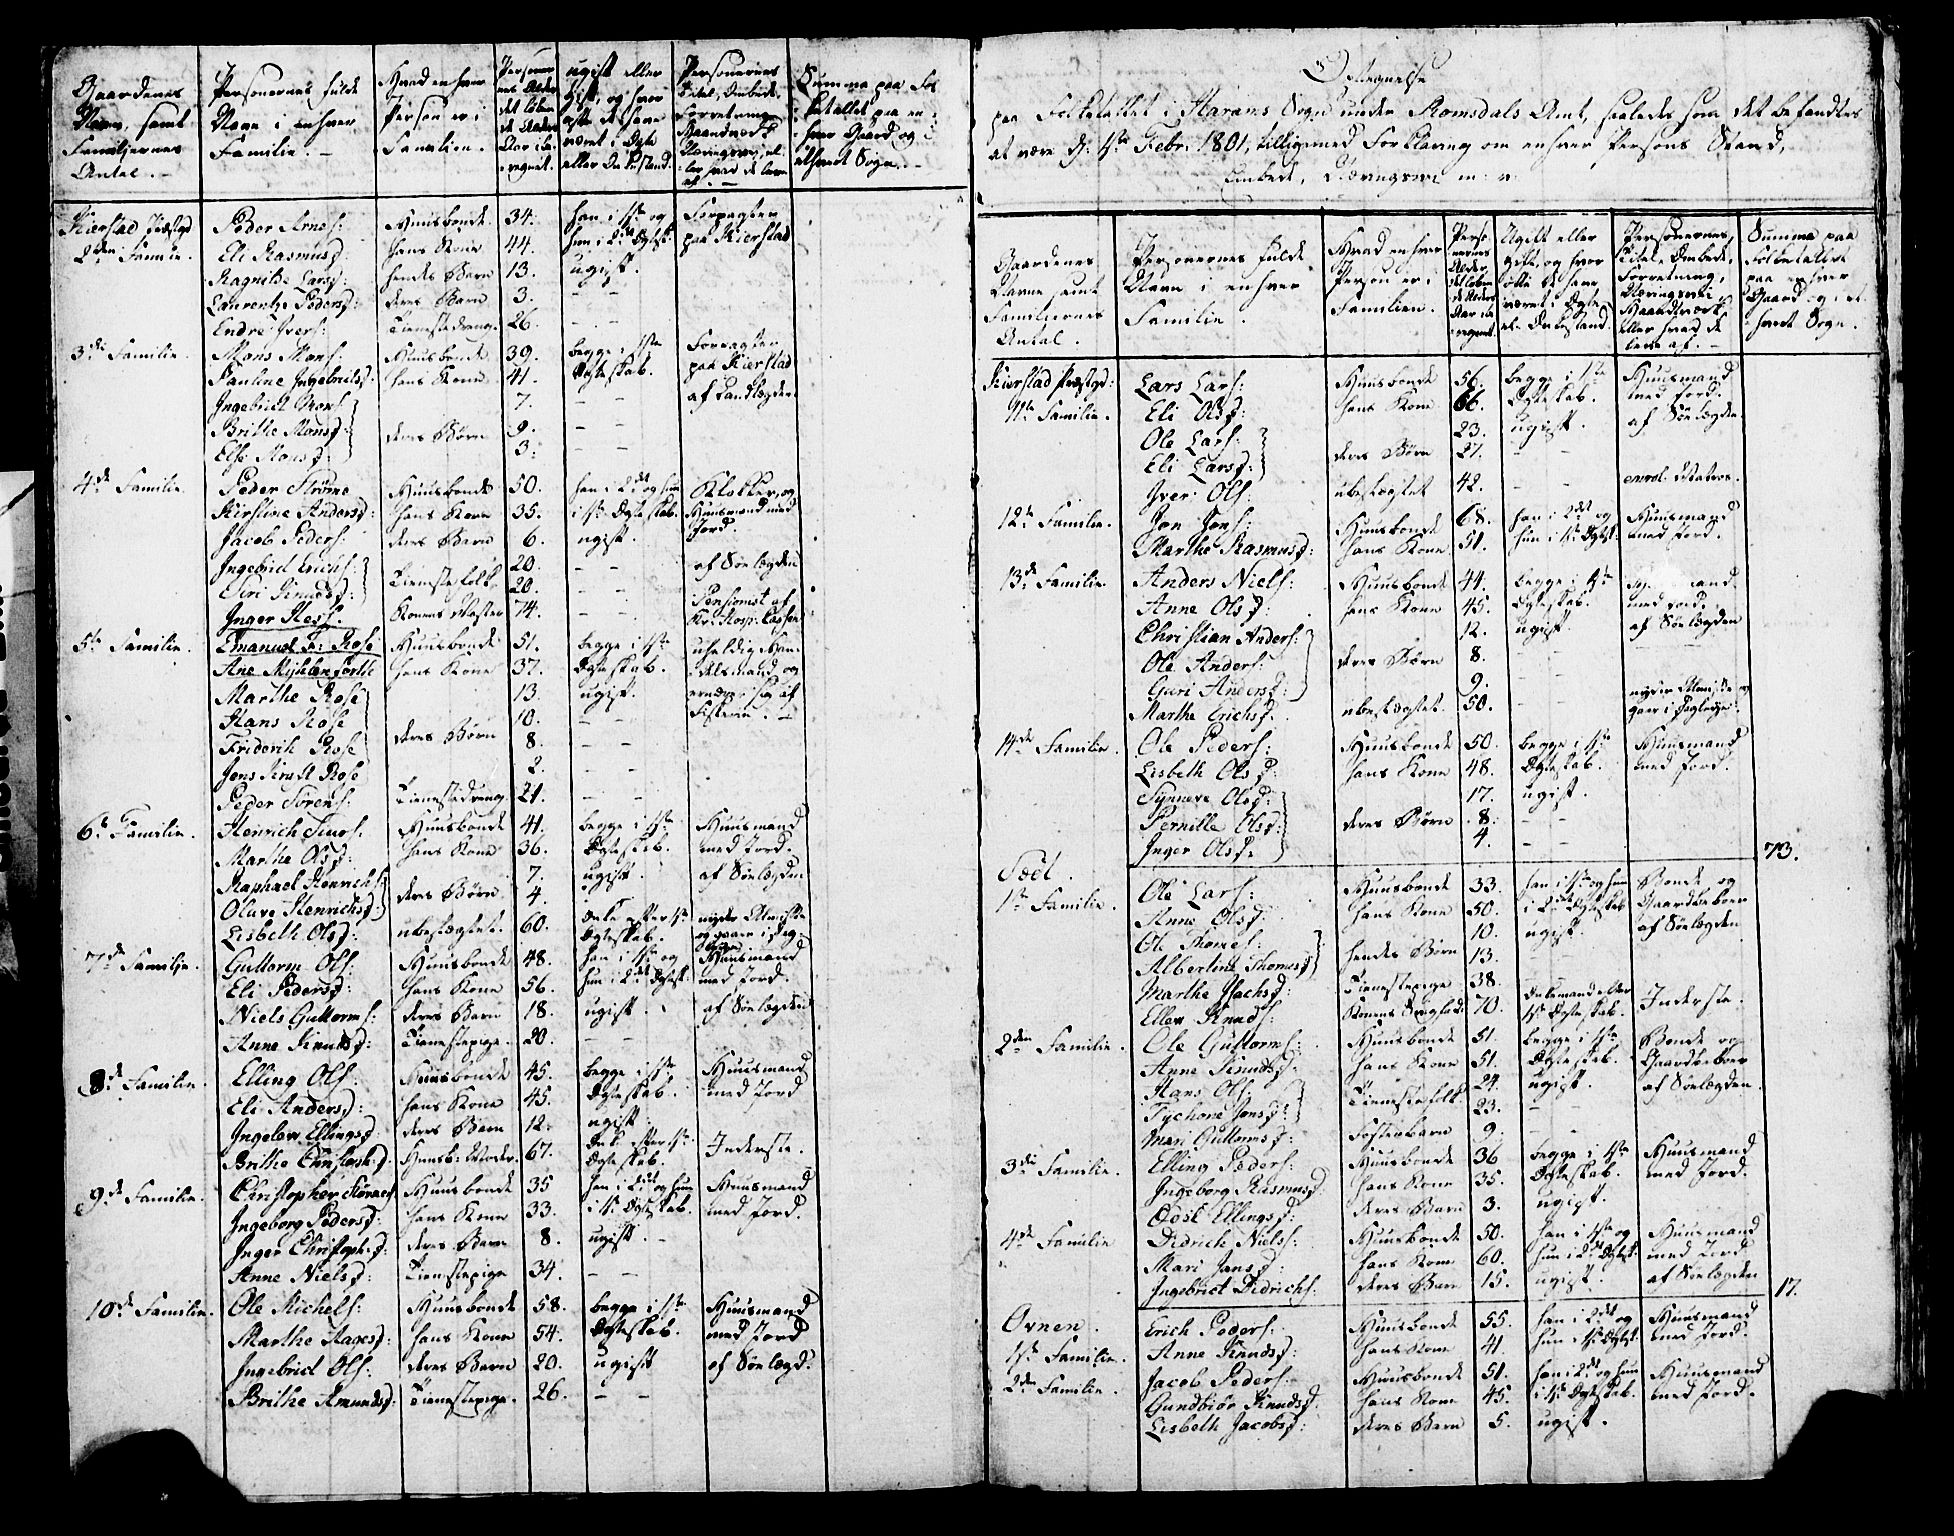 Gaardenes Navn, samt Familjernes Antal.
Personernes fulde Navn i enhver Familie.
Hvad enhver Person er i Familien.
Personernes Alder det løbende Alders Aar iberegnet.
ugift eller gift, og hvor ofte de have været i Ægte eller Enkestand.
Personernes Titel, Embede, Forretning, Haandværk, Næringsvei, eller hvad de leve af.
Summa paa Folketallet paa enhver Gaard og i ethvert Sogn.
Kierstad Præstgd
2den Familie. Peder Arnes: Huusbonde 34. han i 1ste og Forpagter
Eli Rasmusd: hans Kone 44. hun i 2det Ægtesk: paa Kierstad
Ragnilde Larsd: hendes Barn 13. ugift.
Laurentze Pedersd: deres Barn 3. - -
Endre Ivers: Tienestedreng 26. - -
3die Familie. Mons Mons: Huusbonde 39. begge i 1ste Forpagter
Pauline Ingebritsd: hans Kone 41. Ægteskab. paa Kierstad
Ingebrict Mons: 7. - - af Landlægden
Brithe Monsd: deres Børn 9. - -
Else Monsd: 3. - -
4de Familie. Peder Strøme Huusbonde 50. han i 2det og hun Klokker, og
Kirstine Andersd: hans Kone 35. i 1ste Ægteskab. Huusmand med
Jacob Peders: deres Barn 6. ugift. Jord.
Ingebrict Erichs: 20. - - af Søelægden
Siri Knudsd: Tienestefolk 20. - -
Inger Hess. Konens Moster 74. - - Pensionist af
5te Familie. Emanuel Fr: Rose Huusbonde 51. begge i 1ste uheldig Han-
Ane Myhlenforthe hans Kone 37. Ægteskab. delsmand og
Marthe Rose 13. ugift. ernærer sig af
Hans Rose 10. - - Fiskerie.
Friderik Rose deres Børn 8. - -
Jens Kraft Rose 2. - -
Peder Sørens: Tienestedreng 21. - -
6te Familie. Henrich Siurs: Huusbonde 41. begge i 1ste Huusmand
Marthe Olsd: hans Kone 36. Ægteskab. med Jord.
Raphael Henrichs: 7. ugift. af Søelægden
Olave Henrichsd: deres Børn 4.
Lisbeth Olsd: ubeslægtet. 60. Enke efter 1ste Ægteskab. nyder Almisse og gaaer i Lægd
7de Familie. Guttorm Ols: Huusbonde 48. han i 1ste og Huusmand
Eli Pedersd: hans Kone 56. hun i 2det Ægtesk: med Jord.
Niels Guttorms: deres Barn 18. ugift. af Søelægden
Anne Knudsd: Tienestepige. 20. - -
8de Familie Elling Ols: Huusbonde 45. begge i 1ste Huusmand
Eli Andersd: hans Kone 45. Ægteskab. med Jord
Ingelev Ellingsd: deres Barn 12. ugift.
Brithe Christophd: Huusb: Moder. 67. Enke efter 1ste Ægteskab. Inderste.
9de Familie. Christopher Huusbonde 35 han i 2det og hun Huusmand
Ingeborg Pedersd: hans Kone 33. i 1ste Ægteskab. med Jord.
Inger Christophd: deres Barn 8. ugift.
Anne Nielsd: Tienestepige 34. - -
10de Familie. Ole Michels: Huusbonde 58. begge i 1ste Huusmand
Marthe Aagesd: hans Kone 54. Ægteskab. med Jord
Ingebrict Ols: deres Barn 20. ugift af Søelægd:
Brithe Amundsd: Tienestepige. 26. - -
Optegnelse
paa Folketallet i Harams Sogn under Romsdals Amt, saaledes som det befandtes
at være d: 1ste Febr: 1801, tilligemed Forklaring om enhver Persons Stand,
Embede, Næringsvei m: v:
Gaardenes Navne samt Familiernes Antal.
Personernes fulde Navn i enhver Familie.
Hvad enhver Person er i Familien.
Personernes Alder det løbende Alders Aar iberegnet.
Ugift eller gift, og hvor ofte de have været i Ægte eller Enkestand.
Personernes, Titel, Embede, Forretning, Næringsvei, Haandværk eller hvad de leve af.
Summa paa Folketallet paa enhver Gaard og i ethvert Sogn.
Kierstad Præstgd:
11te Familie. Lars Lars: Huusbonde 56. begge i 1ste Huusmand
Eli Olsd: hans Kone 66. Ægteskab. med Jord.
Ole Lars: 23. ugift. af Søelægden
Eli Larsd: deres Børn 27. - -
Iver Ols: ubeslægtet 42. - - enrol: Matros.
12te Familie. Jon Jons: Huusbonde 68. han i 2det og Huusmand
Marthe Rasmusd: hans Kone 51. hun i 1ste Ægtesk: med Jord.
13de Familie Anders Niels: Huusbonde 44. begge i 1ste
Anne Olsd: hans Kone 45. Ægteskab. med Jord.
Christian Anders: 12. ugift af Søelægden
Ole Anders: deres Børn 8. - -
Guri Andersd: 9. - -
Marthe Erichsd. ubeslægtet. 50. - - nyder Almisse og gaaer i Lægd
14de Familie. Ole Peders: Huusbonde 50. begge i 1ste Huusmand
Lisbeth Olsd: hans Kone 48. Ægteskab. med Jord.
Synneve Olsd: 17. ugift.
Pernille Olsd: deres Børn 8. - -
Inger Olsd: 4. - - 73.
1ste Familie. Ole Lars: Huusbonde 33. han i 1ste og hun Bonde og
Anne Olsd: hans Kone 50. i 2det Ægteskab Gaardbeboer
Ole Thomes: 10. ugift. af Søelægden
Albertine Thomesd: hendes Børn 13.
Marthe Isachsd: Tienestepige 38.
Ellev Knuds: 70. Enkemand efter 1ste Ægteskab. Inderste.
2den Familie. Ole Guttorms: Huusbonde 51. begge i 1ste Bonde og
Anne Knudsd: hans Kone 51. Ægteskab. Gaardbeboer
Hans Ols: 24. ugift. af Søelægden.
Tychone Jensd: Tienestefolk 23. - -
Mari Guttormsd: Fosterbarn 9. - -
3die Familie. Elling Peders: Huusbonde 36 begge i 1ste Huusmand
Ingeborg Rasmusd: hans Kone 35. Ægteskab. med Jord.
Ellingsd: deres Barn 3. ugift.
4de Familie Didrich Niels: Huusbonde 50. han i 1ste og Huusmand
Mari Jansd: hans Kone 60. hun i 2det Ægtesk: med Jord
Ingebrict Didrichs: deres Barn 15. ugift. af Søelægden 17.
Ovnen.
1ste Familie. Erich Peders: Huusbonde 55. han i 2det og Huusmand
Anne Knudsd: hans Kone 41. hun i 1ste Ægtesk: med Jord.
2den Familie. Jacob Peders: Huusbonde 51. han i 2det og hun Huusmand
Gundbiør Knudsd: hans Kone 45. i 1ste Ægteskab. med Jord.
Lisbeth Jacobsd: deres Barn 5. ugift.